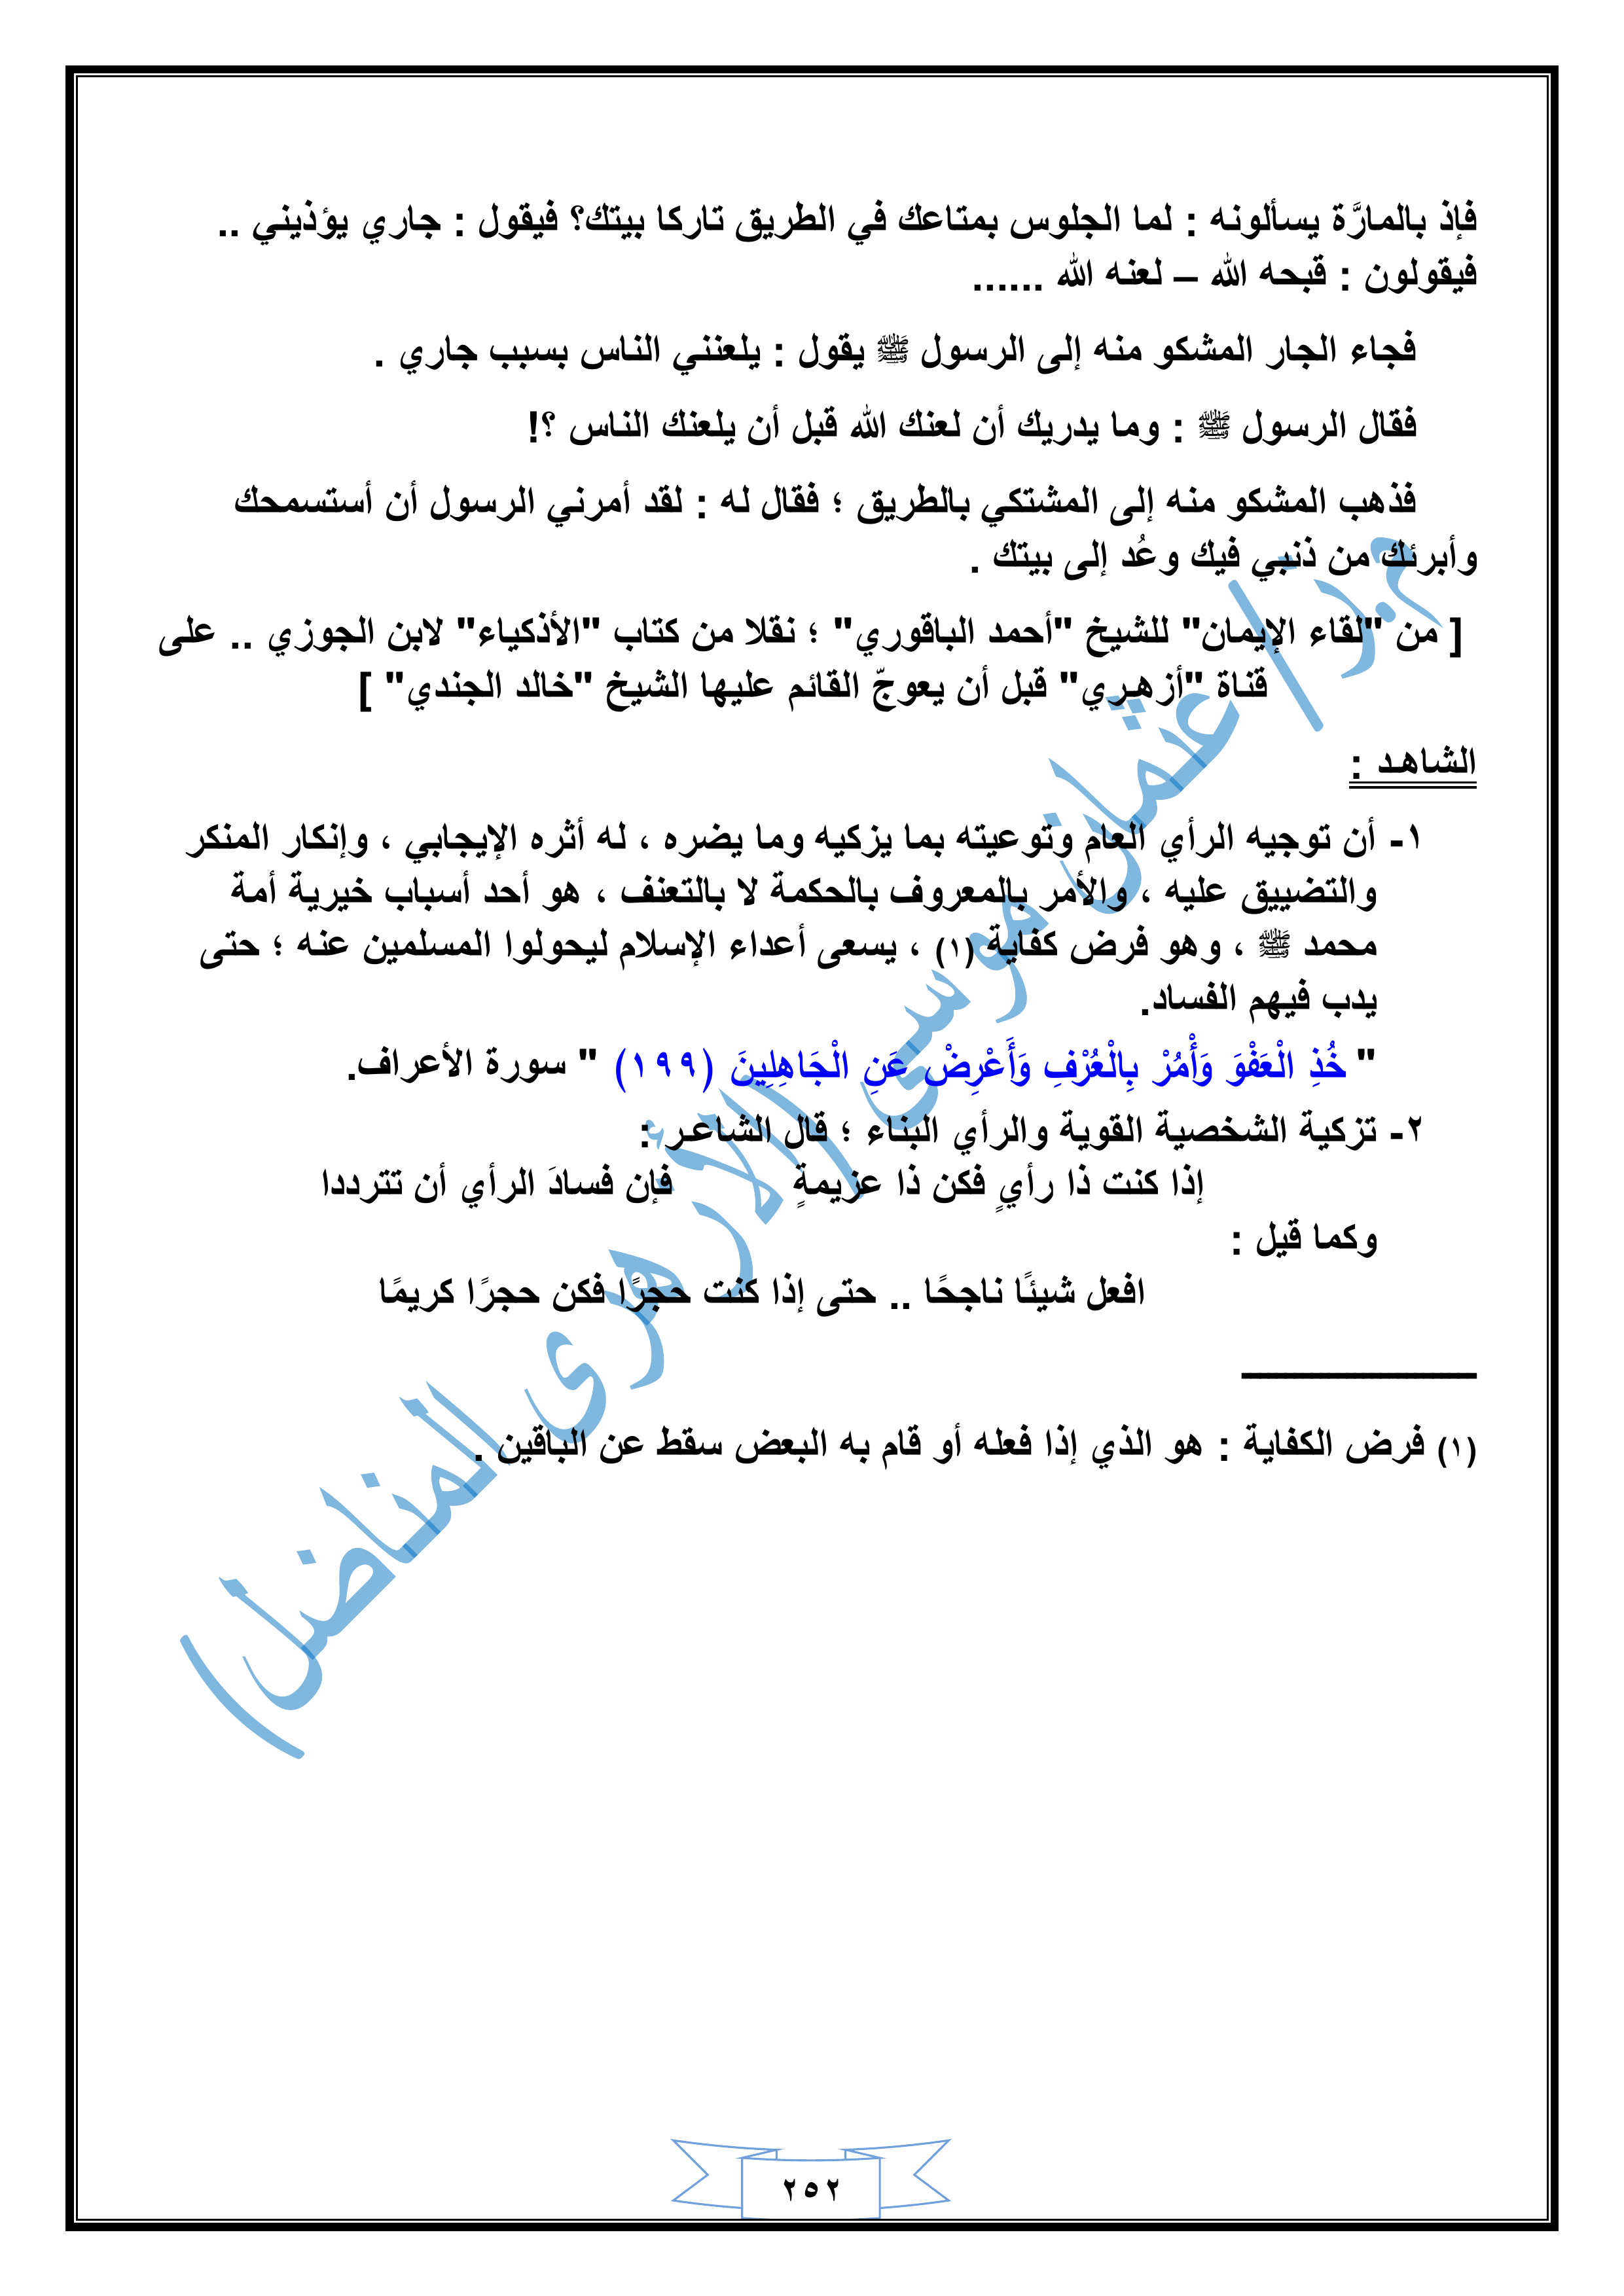 فإذ بالمارَّة يسألونه : لما الجلوس بمتاعك في الطريق تاركا بيتك؟ فيقول : جاري يؤذيني ..
فيقولون : قبحه الله – لعنه الله ......
فجاء الجار المشكو منه إلى الرسول ﷺ يقول : يلعنني الناس بسبب جاري .
فقال الرسول ﷺ : وما يدريك أن لعنك الله قبل أن يلعنك الناس ؟!
فذهب المشكو منه إلى المشتكي بالطريق ؛ فقال له : لقد أمرني الرسول أن أستسمحك
وأبرئك من ذنبي فيك وعُد إلى بيتك .
[ من "لقاء الإيمان" للشيخ "أحمد الباقوري" ؛ نقلا من كتاب "الأذكياء" لابن الجوزي .. على
قناة "أزهـري" قبل أن يعوجّ القائم عليها الشيخ "خالد الجندي" ]
الشاهـد :
١- أن توجيه الرأي العام وتوعيته بما يزكيه وما يضره ، له أثره الإيجابي ، وإنكار المنكر
والتضييق عليه ، والأمر بالمعروف بالحكمة لا بالتعنف ، هو أحد أسباب خيرية أمة
محمد ﷺ ، وهو فرض كفاية (١) ، يسعى أعداء الإسلام ليحولوا المسلمين عنه ؛ حتى
يدب فيهم الفساد.
" خُذِ الْعَفْوَ وَأْمُرْ بِالْعُرْفِ وَأَعْرِضْ عَنِ الْجَاهِلِينَ (١٩٩) " سورة الأعراف.
٢- تزكية الشخصية القوية والرأي البناء ؛ قال الشاعـر :
إذا كنت ذا رأيٍ فكن ذا عزيمةٍ فإن فسادَ الرأي أن تترددا
وكما قيل :
افعل شيئًا ناجحًا .. حتى إذا كنت حجرًا فكن حجرًا كريمًا
(١) فرض الكفاية : هو الذي إذا فعله أو قام به البعض سقط عن الباقين .
عثمان موسى (الأزهرى المناضل)
٢٥٢